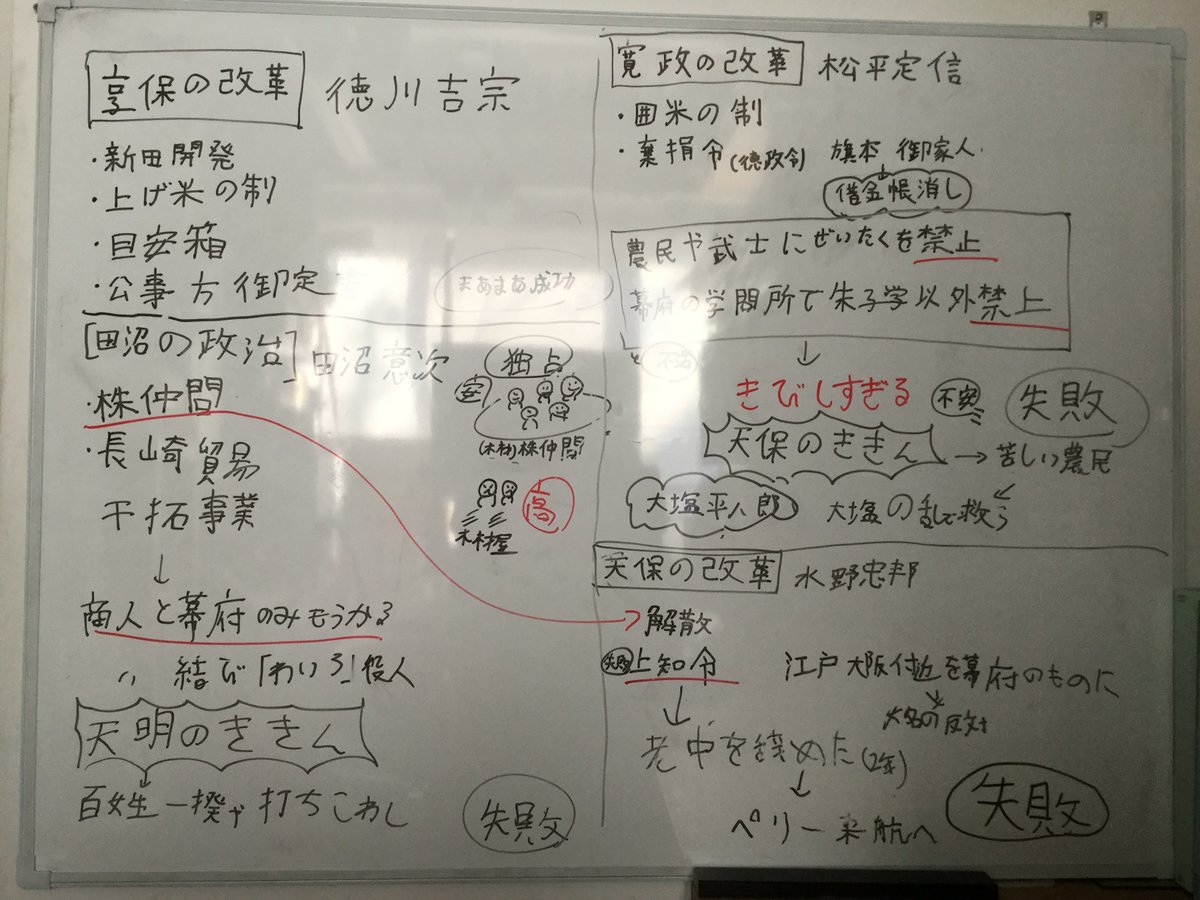 享保の改革 徳川吉宗
・新田開発
・上げ米の制
・目安箱
・公事方御定書
まあまあ成功
[田沼の政治] 田沼意次
・株仲間
・長崎貿易
干拓事業
↓
商人と幕府のみもうかる
〃 結び「わいろ」役人
天明のききん
↓
百姓一揆や打ちこわし
失敗
独占
安
(木材)株仲間
高
木材屋
寛政の改革 松平定信
・囲米の制
・棄捐令(徳政令) 旗本 御家人
借金帳消し
農民や武士にぜいたくを禁止
幕府の学問所で朱子学以外禁止
↓
不満
きびしすぎる 不安 失敗
天保のききん → 苦しい農民
大塩平八郎 大塩の乱で救う
天保の改革 水野忠邦
→ 解散
失敗 上知令 江戸大阪付近を幕府のものに
大名の反対
↓
老中を辞めた(2年)
↓
ペリー来航へ
失敗